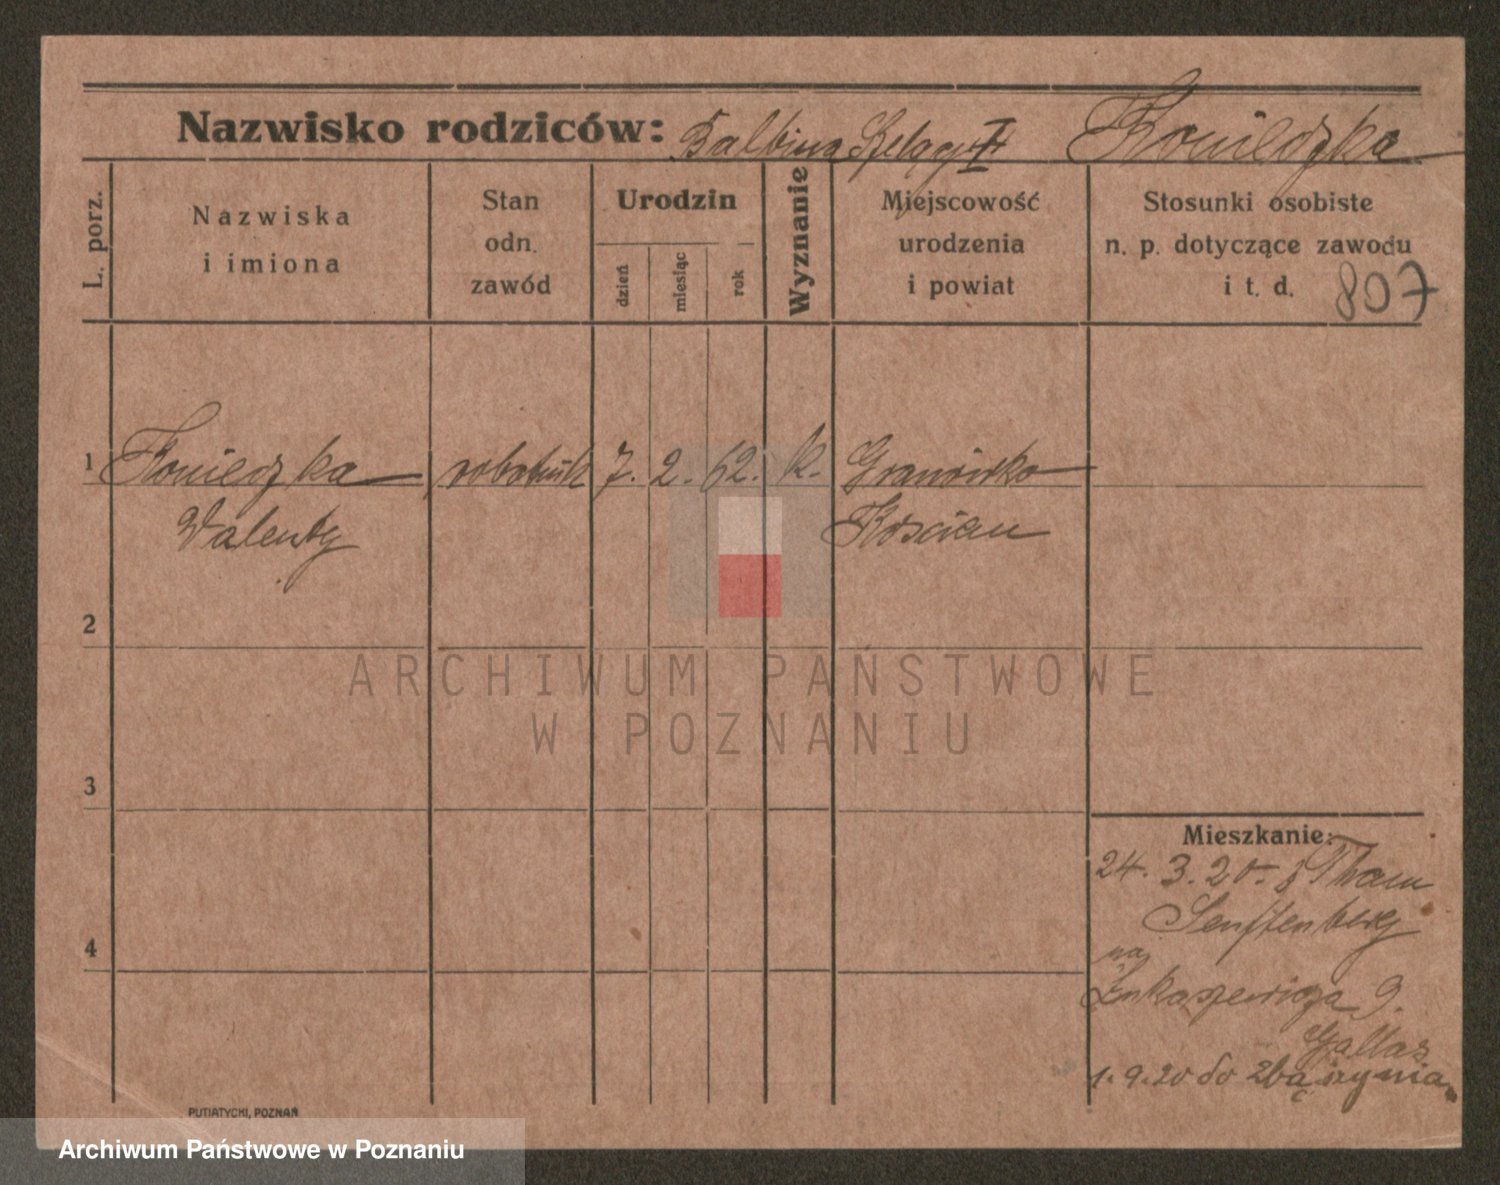 Nazwisko rodziców: Balbina Szeląg Konieczka
L. porz.
Nazwiska
i imiona
Stan
odn.
zawód
Urodzin
dzień
miesiąc
rok
Wyznanie
Miejscowość
urodzenia
i powiat
Stosunki osobiste
n. p. dotyczące zawodu
i t. d.
807
1 Konieczka robotnik 7. 2. 62. k. Granówko
Walenty Kościan
2
ARCHIWUM PAŃSTWOWE
W POZNANIU
3
Mieszkanie:
24. 3. 20.
Senftenberg
4
na
Łukaszewicza 9.
Gallas
1. 9. 20 do Zbąszynia
PUTIATYCKI, POZNAŃ
Archiwum Państwowe w Poznaniu